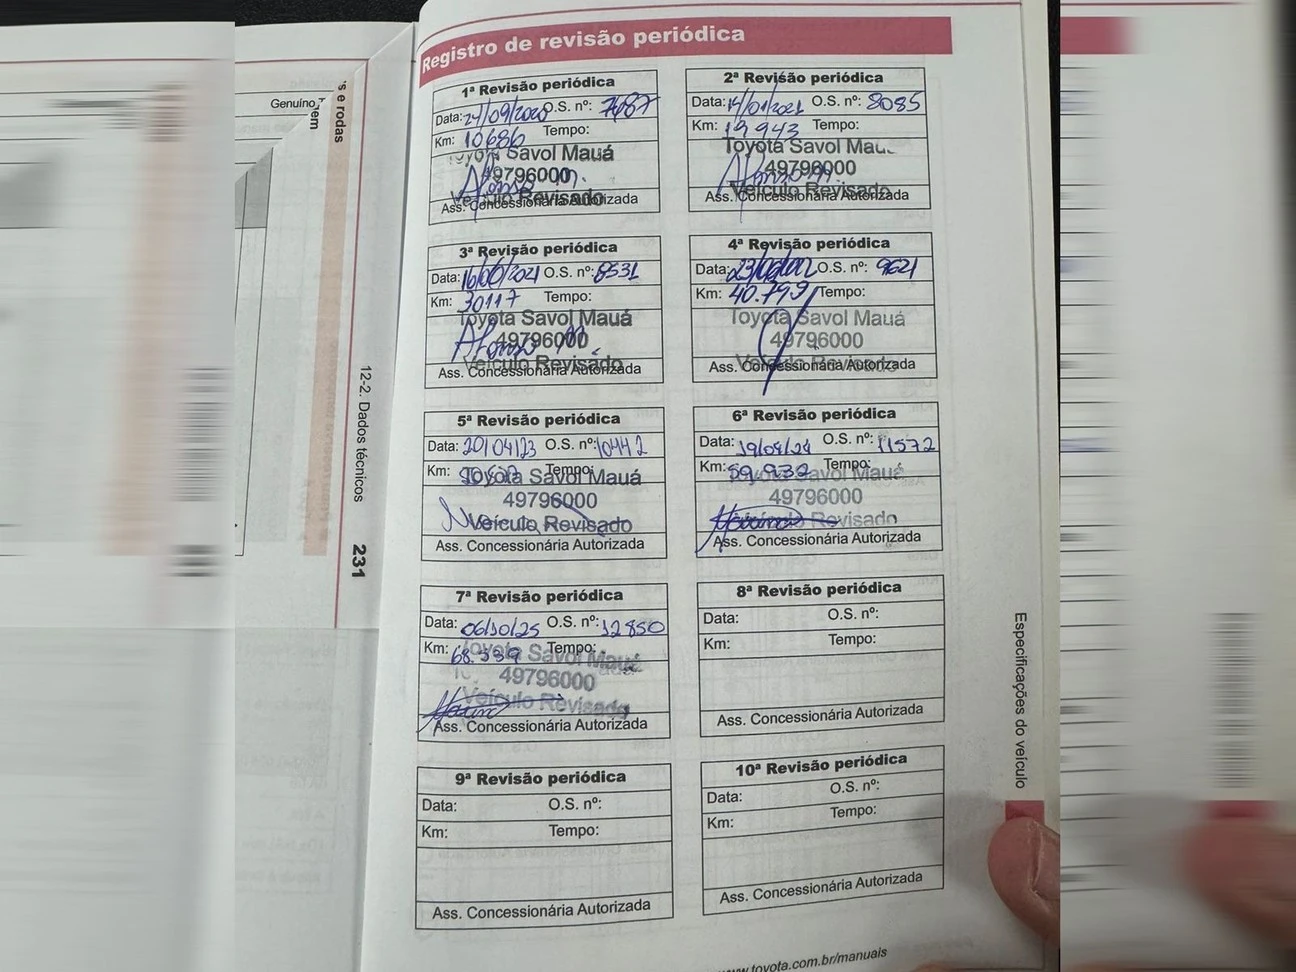 Registro de revisão periódica
1ª Revisão periódica
Data: 24/09/2020 O.S. nº: 7687
Km: 10686 Tempo:
Toyota Savol Mauá
49796000
Veículo Revisado
Ass. Concessionária Autorizada
2ª Revisão periódica
Data: 14/01/2021 O.S. nº: 8085
Km: 19943 Tempo:
Toyota Savol Mauá
49796000
Veículo Revisado
Ass. Concessionária Autorizada
3ª Revisão periódica
Data: O.S. nº: 8531
Km: 30117 Tempo:
Toyota Savol Mauá
49796000
Veículo Revisado
Ass. Concessionária Autorizada
4ª Revisão periódica
Data: O.S. nº: 9621
Km: 40.799 Tempo:
Toyota Savol Mauá
49796000
Veículo Revisado
Ass. Concessionária Autorizada
5ª Revisão periódica
Data: 20/04/23 O.S. nº: 10442
Km: Tempo:
Toyota Savol Mauá
49796000
Veículo Revisado
Ass. Concessionária Autorizada
6ª Revisão periódica
Data: 19/04/24 O.S. nº: 11572
Km: 59.932 Tempo:
Toyota Savol Mauá
49796000
Veículo Revisado
Ass. Concessionária Autorizada
7ª Revisão periódica
Data: 06/10/25 O.S. nº: 12850
Km: 68.339 Tempo:
Toyota Savol Mauá
49796000
Veículo Revisado
Ass. Concessionária Autorizada
8ª Revisão periódica
Data: O.S. nº:
Km: Tempo:
Ass. Concessionária Autorizada
9ª Revisão periódica
Data: O.S. nº:
Km: Tempo:
Ass. Concessionária Autorizada
10ª Revisão periódica
Data: O.S. nº:
Km: Tempo:
Ass. Concessionária Autorizada
Genuíno T
em
s e rodas
12-2. Dados técnicos
231
Especificações do veículo
www.toyota.com.br/manuais